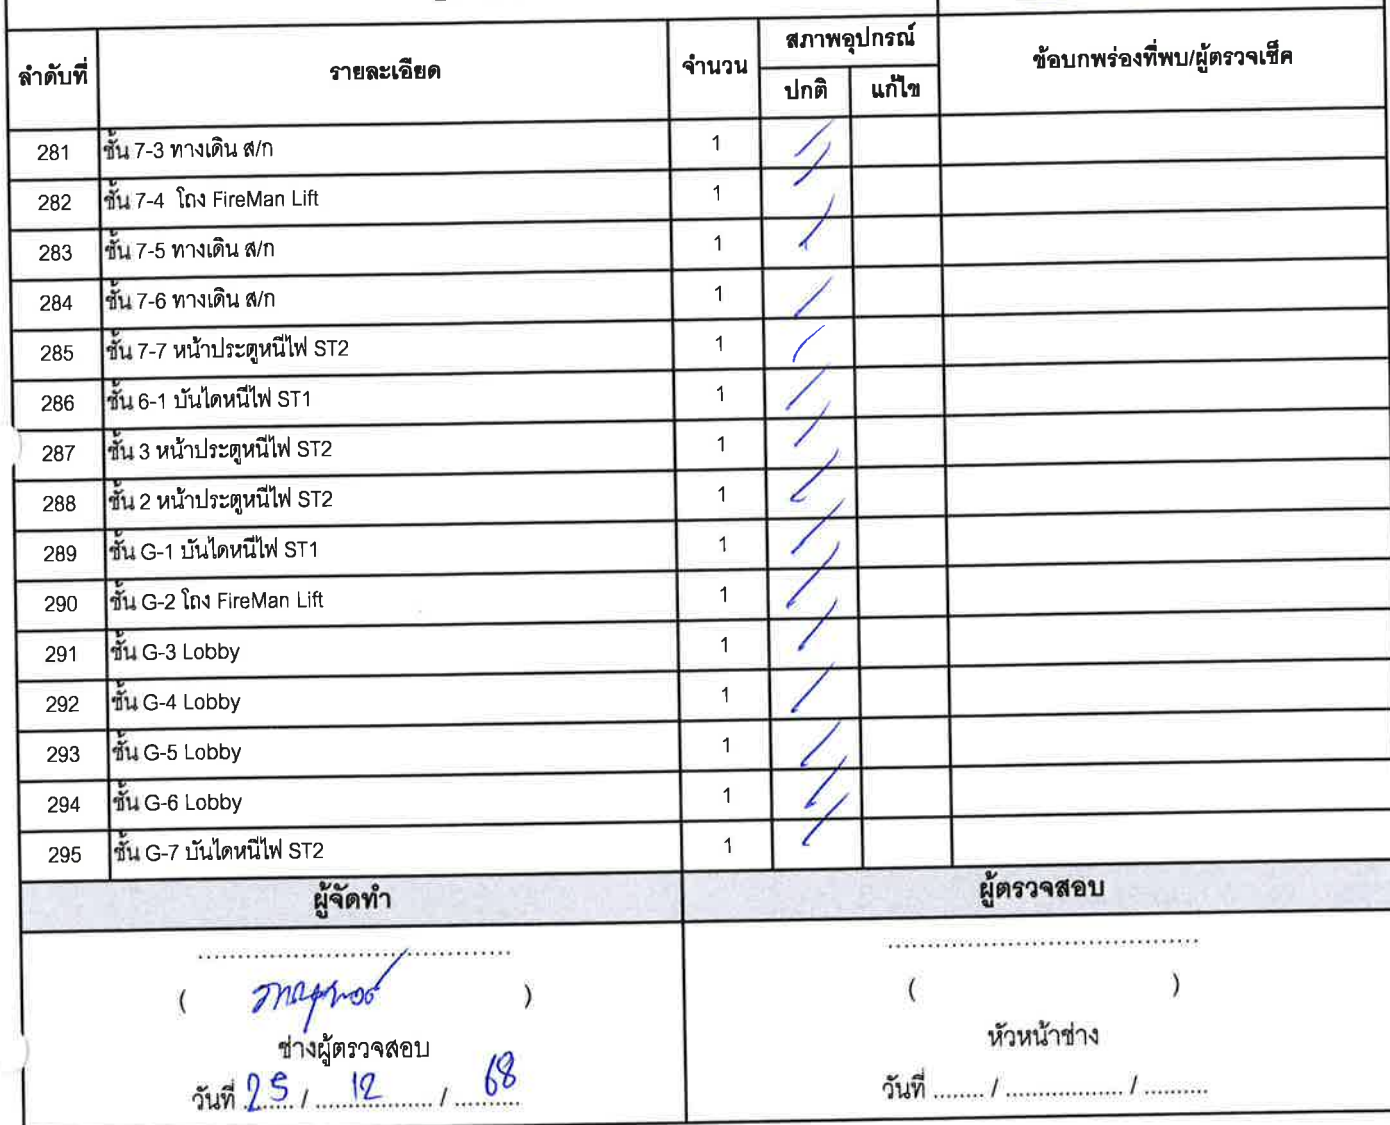 ลำดับที่ รายละเอียด จำนวน สภาพอุปกรณ์ ข้อบกพร่องที่พบ/ผู้ตรวจเช็ค
ปกติ แก้ไข
281 ชั้น 7-3 ทางเดิน ส/ก 1 /
282 ชั้น 7-4 โถง FireMan Lift 1 /
283 ชั้น 7-5 ทางเดิน ส/ก 1 /
284 ชั้น 7-6 ทางเดิน ส/ก 1 /
285 ชั้น 7-7 หน้าประตูหนีไฟ ST2 1 /
286 ชั้น 6-1 บันไดหนีไฟ ST1 1 /
287 ชั้น 3 หน้าประตูหนีไฟ ST2 1 /
288 ชั้น 2 หน้าประตูหนีไฟ ST2 1 /
289 ชั้น G-1 บันไดหนีไฟ ST1 1 /
290 ชั้น G-2 โถง FireMan Lift 1 /
291 ชั้น G-3 Lobby 1 /
292 ชั้น G-4 Lobby 1 /
293 ชั้น G-5 Lobby 1 /
294 ชั้น G-6 Lobby 1 /
295 ชั้น G-7 บันไดหนีไฟ ST2 1 /
ผู้จัดทำ ผู้ตรวจสอบ
( ) ( )
ช่างผู้ตรวจสอบ หัวหน้าช่าง
วันที่ 25 / 12 / 68 วันที่ ........ / .................. / ..........